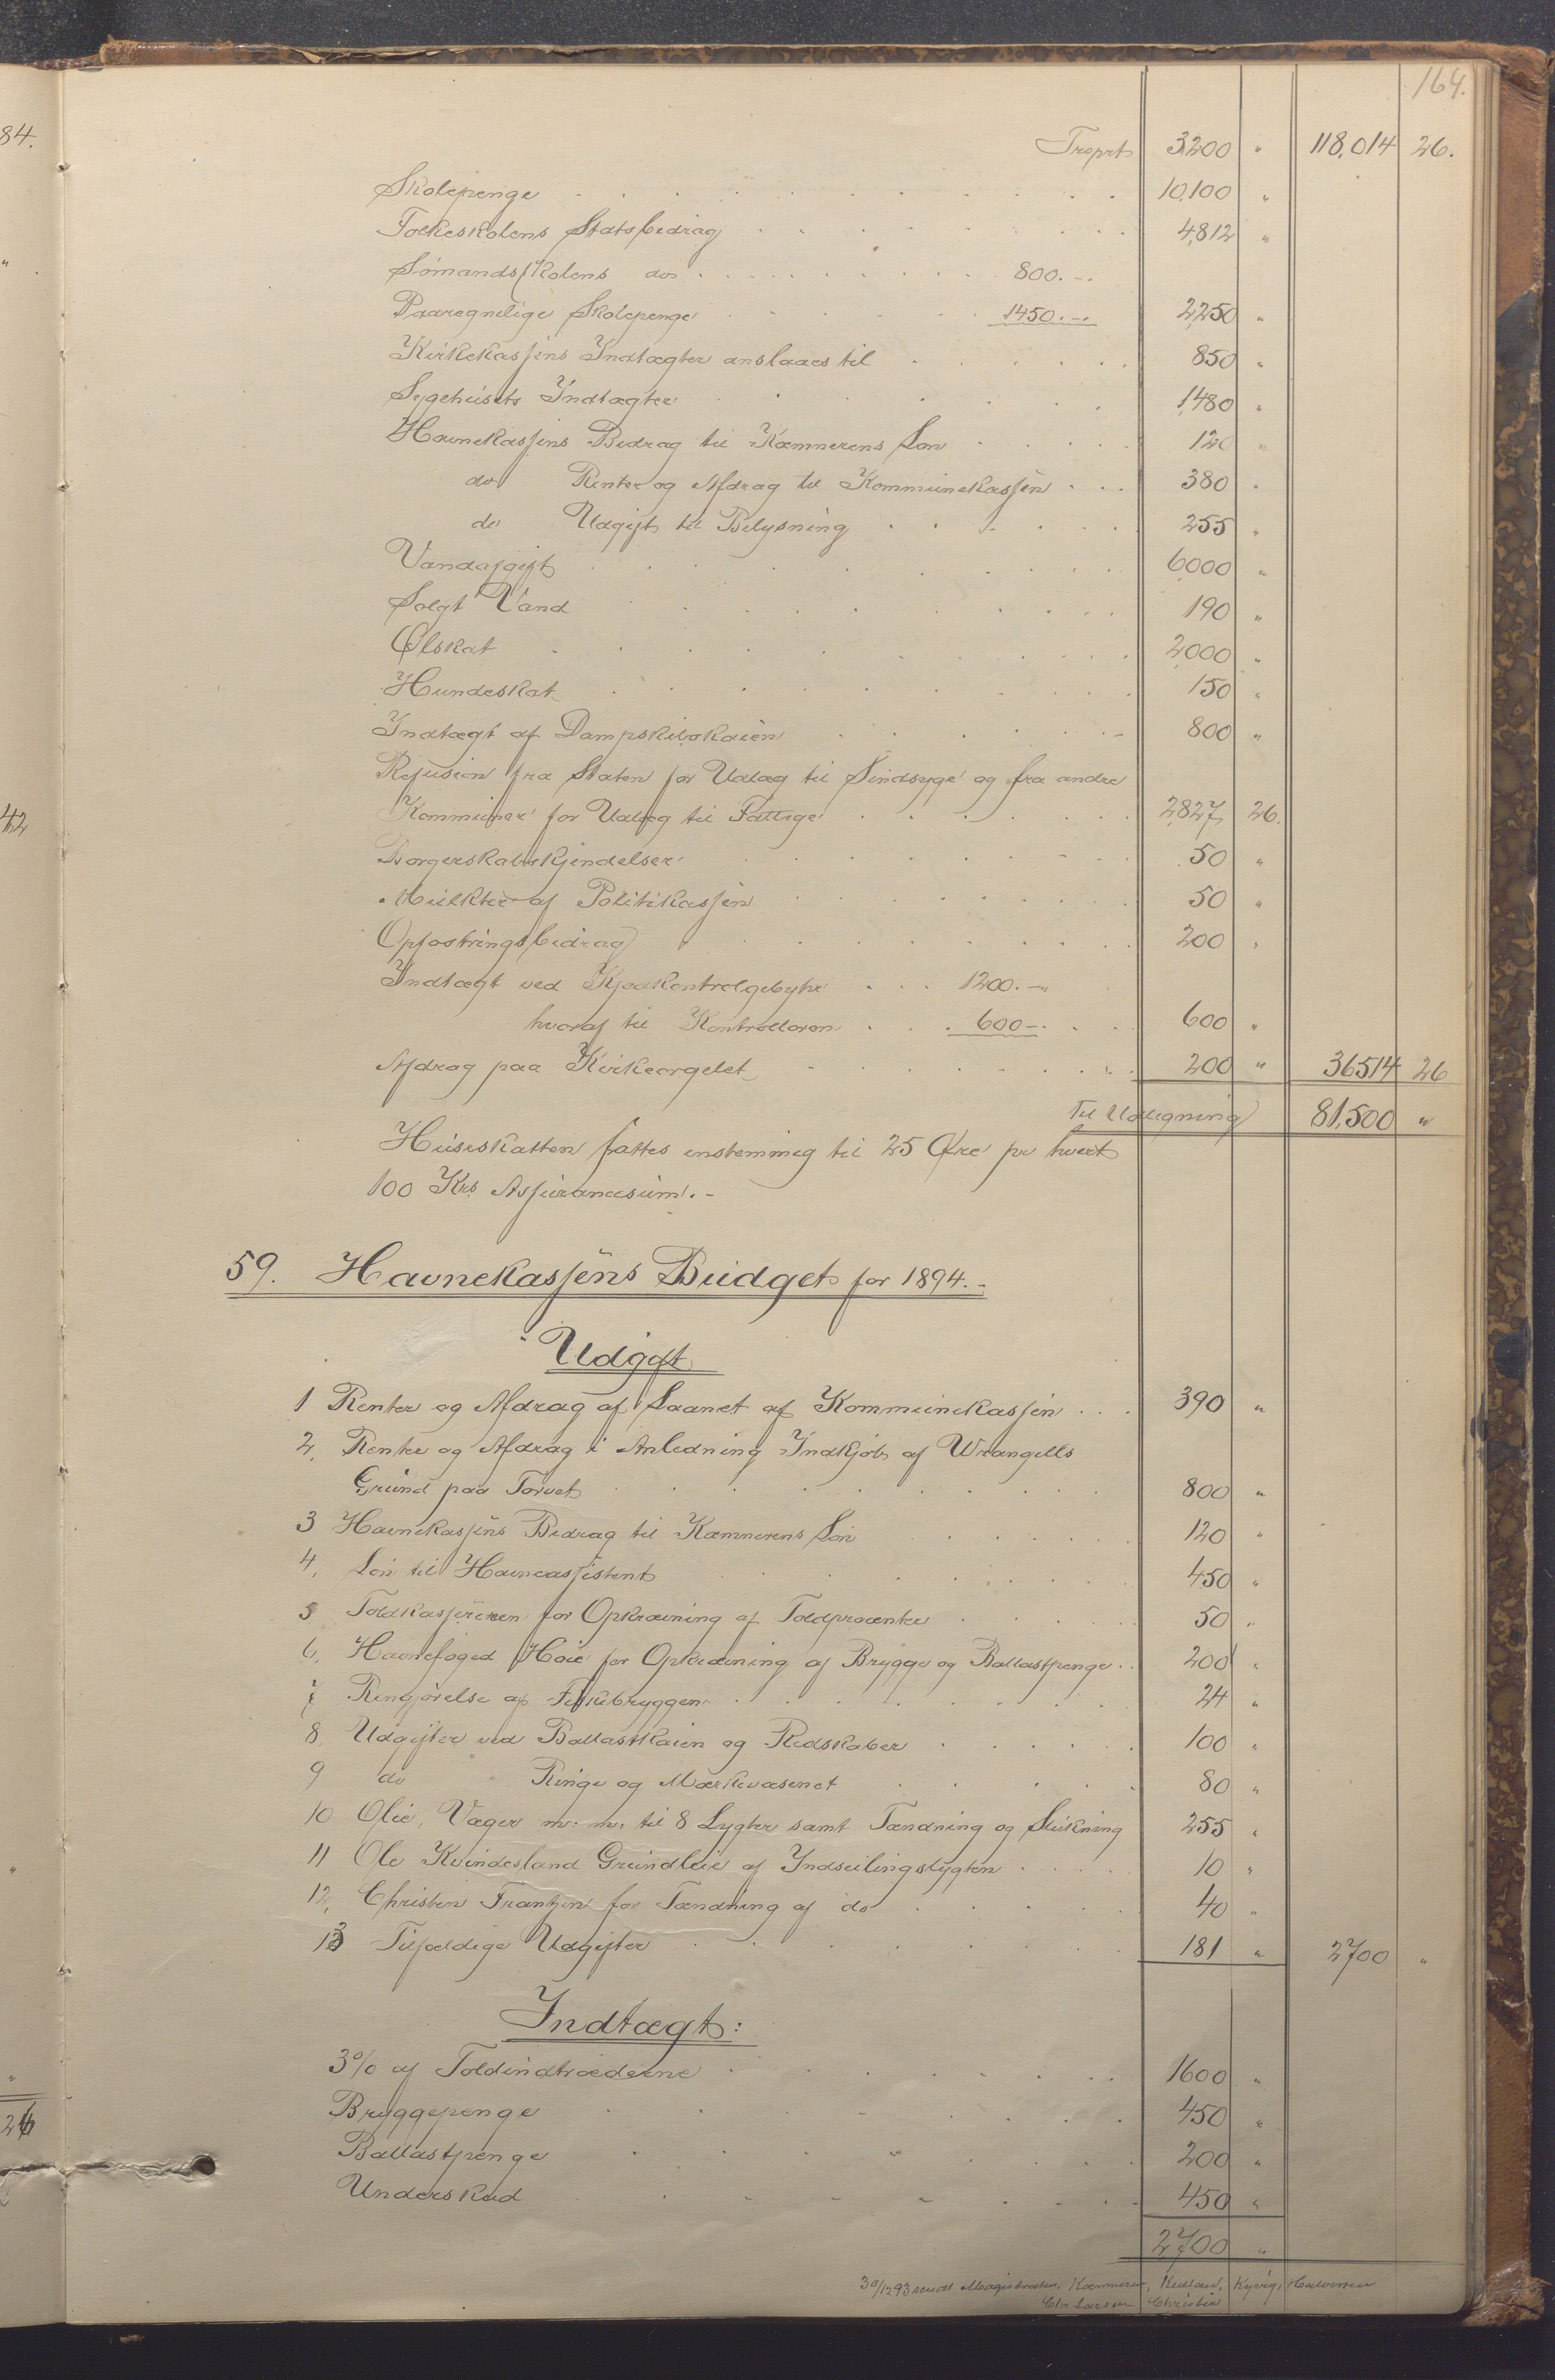 164.
Trsprt 3200 " 118,014 26.
Skolepenge 10,100 "
Folkeskolens Statsbidrag 4,812 "
Sømandsskolens do 800.-
Paaregnelige Skolepenge 1450.- 2,250 "
Kirkekassens Indtægter anslaaes til 850 "
Sygehusets Indtægter 1,480 "
Havnekassens Bidrag til Kæmnerens Løn 120 "
do Renter og Afdrag til Kommunekassen 380 "
do Udgift til Belysning 255 "
Vandafgift 6000 "
Solgt Vand 190 "
Ølskat 2,000 "
Hundeskat 150 "
Indtægt af Dampskibskaien 800 "
Refusion fra Staten for Udlæg til Sindsyge og fra andre
Kommuner for Udlæg til Fattige 2,827 26.
Borgerskabskjendelser 50 "
Mulkter af Politikassen 50 "
Opfostringsbidrag 200 "
Indtægt ved Kjødkontrolgebyhr 1200.-"
hvoraf til Kontrolløren 600-. 600 "
Afdrag paa Kirkeorgelet 200 " 36514 26
Til Udligning 81,500 "
Husskatten sattes enstemmig til 25 Øre pr hvert
100 Krs Assurancesum.-
59. Havnekassens Budget for 1894.-
Udgift
1 Renter og Afdrag af Laanet af Kommunekassen 390 "
2, Renter og Afdrag i Anledning Indkjøb af Wrangells
Grund paa Torvet 800 "
3 Havnekassens Bidrag til Kæmnerens Løn 120 "
4, Løn til Havneassistent 450 "
5 Toldkassereren for Opkrævning af Toldprocenter 50 "
6, Havnefoged Høie for Opkrævning af Brygge og Ballastpenge 200 "
7 Rengjørelse af Fiskebryggen 24 "
8, Udgifter ved Ballastkaien og Redskaber 100 "
9 do " Ringe og Mærkevæsenet 80 "
10 Olie, Væger m. m. til 8 Lygter samt Tænding og Slukning 255 "
11 Ole Kvindesland Grundleie af Indseilingslygten 10 "
12, Christen Frantzen for Tænding af do 40 "
13 Tilfældige Udgifter 181 " 2700 "
Indtægt:
3% af Toldindtræderne 1600 "
Bryggepenge 450 "
Ballastpenge 200 "
Underskud 450 "
2,700 "
30/12 93 sendt Magistraten, Kæmneren, Kielland, Kyvig, Halvorsen
Chr Larsen Christie
84.
"
42
"
"
26